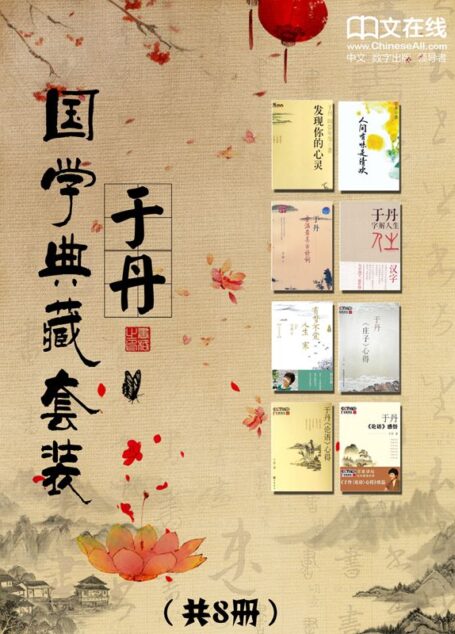 中文在线
www.ChineseAll.com
中文 数字出版 领导者
国学典藏套装
于丹
发现你的心灵
人间有味是清欢
于丹
重温最美古诗词
于丹
字解人生
汉字
有梦不觉人生寒
于丹
《庄子》心得
于丹《论语》心得
于丹
《论语》感悟
(共8册)